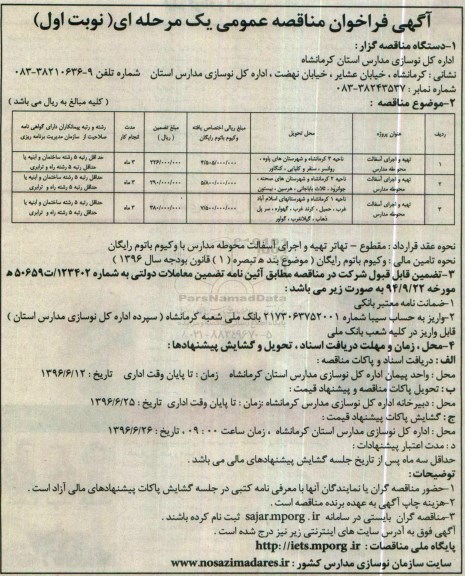 آگهی فراخوان مناقصه عمومی یک مرحله ای( نوبت اول)
۱-دستگاه مناقصه گزار :
اداره کل نوسازی مدارس استان کرمانشاه
نشانی : کرمانشاه ، خیابان عشایر ، خیابان نهضت ، اداره کل نوسازی مدارس استان شماره تلفن ۹-۳۸۲۱۰۶۳۶-۰۸۳
شماره نمابر : ۳۸۲۴۳۵۳۷-۰۸۳
۲-موضوع مناقصه : ( کلیه مبالغ به ریال می باشد )
ردیف عنوان پروژه محل تحویل مبلغ ریالی اختصاص یافته وکیوم باتوم رایگان مبلغ تضمین ( ریال ) مدت انجام کار رشته و رتبه پیمانکاران دارای گواهی نامه صلاحیت از سازمان مدیریت برنامه ریزی
۱ تهیه و اجرای آسفالت محوطه مدارس ناحیه ۳ کرمانشاه و شهرستان های پاوه ، روانسر ، سنقر و کلیایی ، کنگاور ۴/۵۰۵/۰۰۰/۰۰۰ ۲۲۶/۰۰۰/۰۰۰ ۳ ماه حداقل رتبه ۵ رشته ساختمان و ابنیه یا حداقل رتبه ۵ رشته راه و ترابری
۲ تهیه و اجرای آسفالت محوطه مدارس ناحیه ۲ کرمانشاه و شهرستانهای صحنه ، جوانرود ، ثلاث باباجانی ، هرسین ، بیستون ۵/۸۰۰/۰۰۰/۰۰۰ ۲۹۰/۰۰۰/۰۰۰ ۳ ماه حداقل رتبه ۵ رشته ساختمان و ابنیه یا حداقل رتبه ۵ رشته راه و ترابری
۳ تهیه و اجرای آسفالت محوطه مدارس ناحیه ۱ کرمانشاه و شهرستانهای اسلام آباد غرب ، حمیل ، کرند غرب ، گهواره ، سر پل ذهاب ، گیلانغرب ، گواور ۷/۵۰۰/۰۰۰/۰۰۰ ۳۸۰/۰۰۰/۰۰۰ ۳ ماه حداقل رتبه ۵ رشته ساختمان و ابنیه یا حداقل رتبه ۵ رشته راه و ترابری
نحوه عقد قرارداد : مقطوع - تهاتر تهیه و اجرای آسفالت محوطه مدارس با وکیوم باتوم رایگان
نحوه تامین مالی : وکیوم باتوم رایگان ( موضوع بند ه تبصره ( ۱ ) قانون بودجه سال ۱۳۹۶ )
۳-تضمین قابل قبول شرکت در مناقصه مطابق آئین نامه تضمین معاملات دولتی به شماره ۱۲۳۴۰۲/ت۵۰۶۵۹ ه
مورخه ۹۴/۹/۲۲ به صورت زیر می باشد :
۱-ضمانت نامه معتبر بانکی
۲-واریز به حساب سیبا شماره ۲۱۷۳۰۶۳۷۵۲۰۰۱ بانک ملی شعبه کرمانشاه ( سپرده اداره کل نوسازی مدارس استان )
قابل واریز در کلیه شعب بانک ملی
۴-محل ، زمان و مهلت دریافت اسناد ، تحویل و گشایش پیشنهادها :
الف : دریافت اسناد و پاکات مناقصه :
محل : واحد پیمان اداره کل نوسازی مدارس استان کرمانشاه زمان : تا پایان وقت اداری تاریخ : ۱۳۹۶/۶/۱۲
ب : تحویل پاکات مناقصه و پیشنهاد قیمت :
محل : دبیرخانه اداره کل نوسازی مدارس کرمانشاه :زمان : تا پایان وقت اداری تاریخ : ۱۳۹۶/۶/۲۵
ج : گشایش پاکات پیشنهاد قیمت :
محل : اداره کل نوسازی مدارس استان کرمانشاه ، زمان ساعت ۰۰ : ۰۹ ، تاریخ : ۱۳۹۶/۶/۲۶
د : مدت اعتبار پیشنهادات :
حداقل سه ماه پس از تاریخ جلسه گشایش پیشنهادهای مالی می باشد .
توضیحات:
۱-حضور مناقصه گران یا نمایندگان آنها با معرفی نامه کتبی در جلسه گشایش پاکات پیشنهادهای مالی آزاد است .
۲-هزینه چاپ آگهی به عهده برنده مناقصه است .
۳-مناقصه گران بایستی در سامانه sajar.mporg.ir ثبت نام کرده باشند .
آگهی فوق به آدرس سایت های اینترنتی زیر نیز درج شده است .
پایگاه ملی مناقصات : http://iets.mporg.ir
سایت سازمان نوسازی مدارس کشور : www.nosazimadares.ir
ParsNamadData